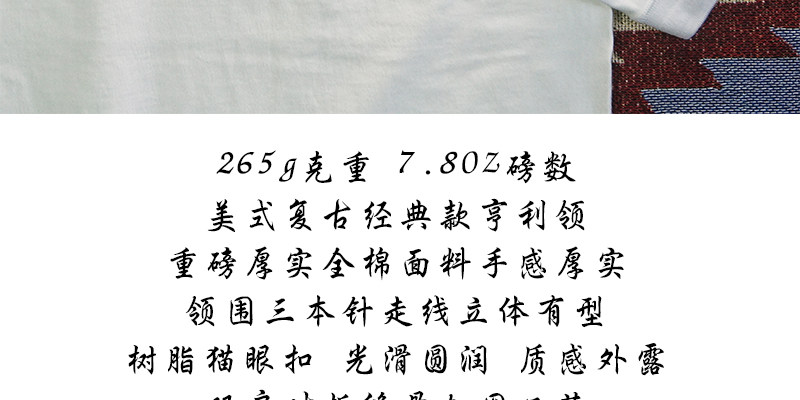 265g克重 7.8OZ磅数
美式复古经典款亨利领
重磅厚实全棉面料手感厚实
领围三本针走线立体有型
树脂猫眼扣 光滑圆润 质感外露